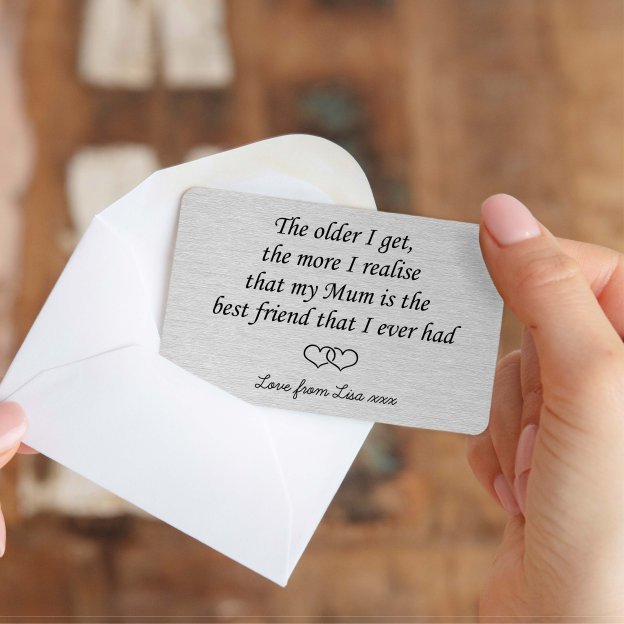 The older I get,
the more I realise
that my Mum is the
best friend that I ever had
Love from Lisa xxx